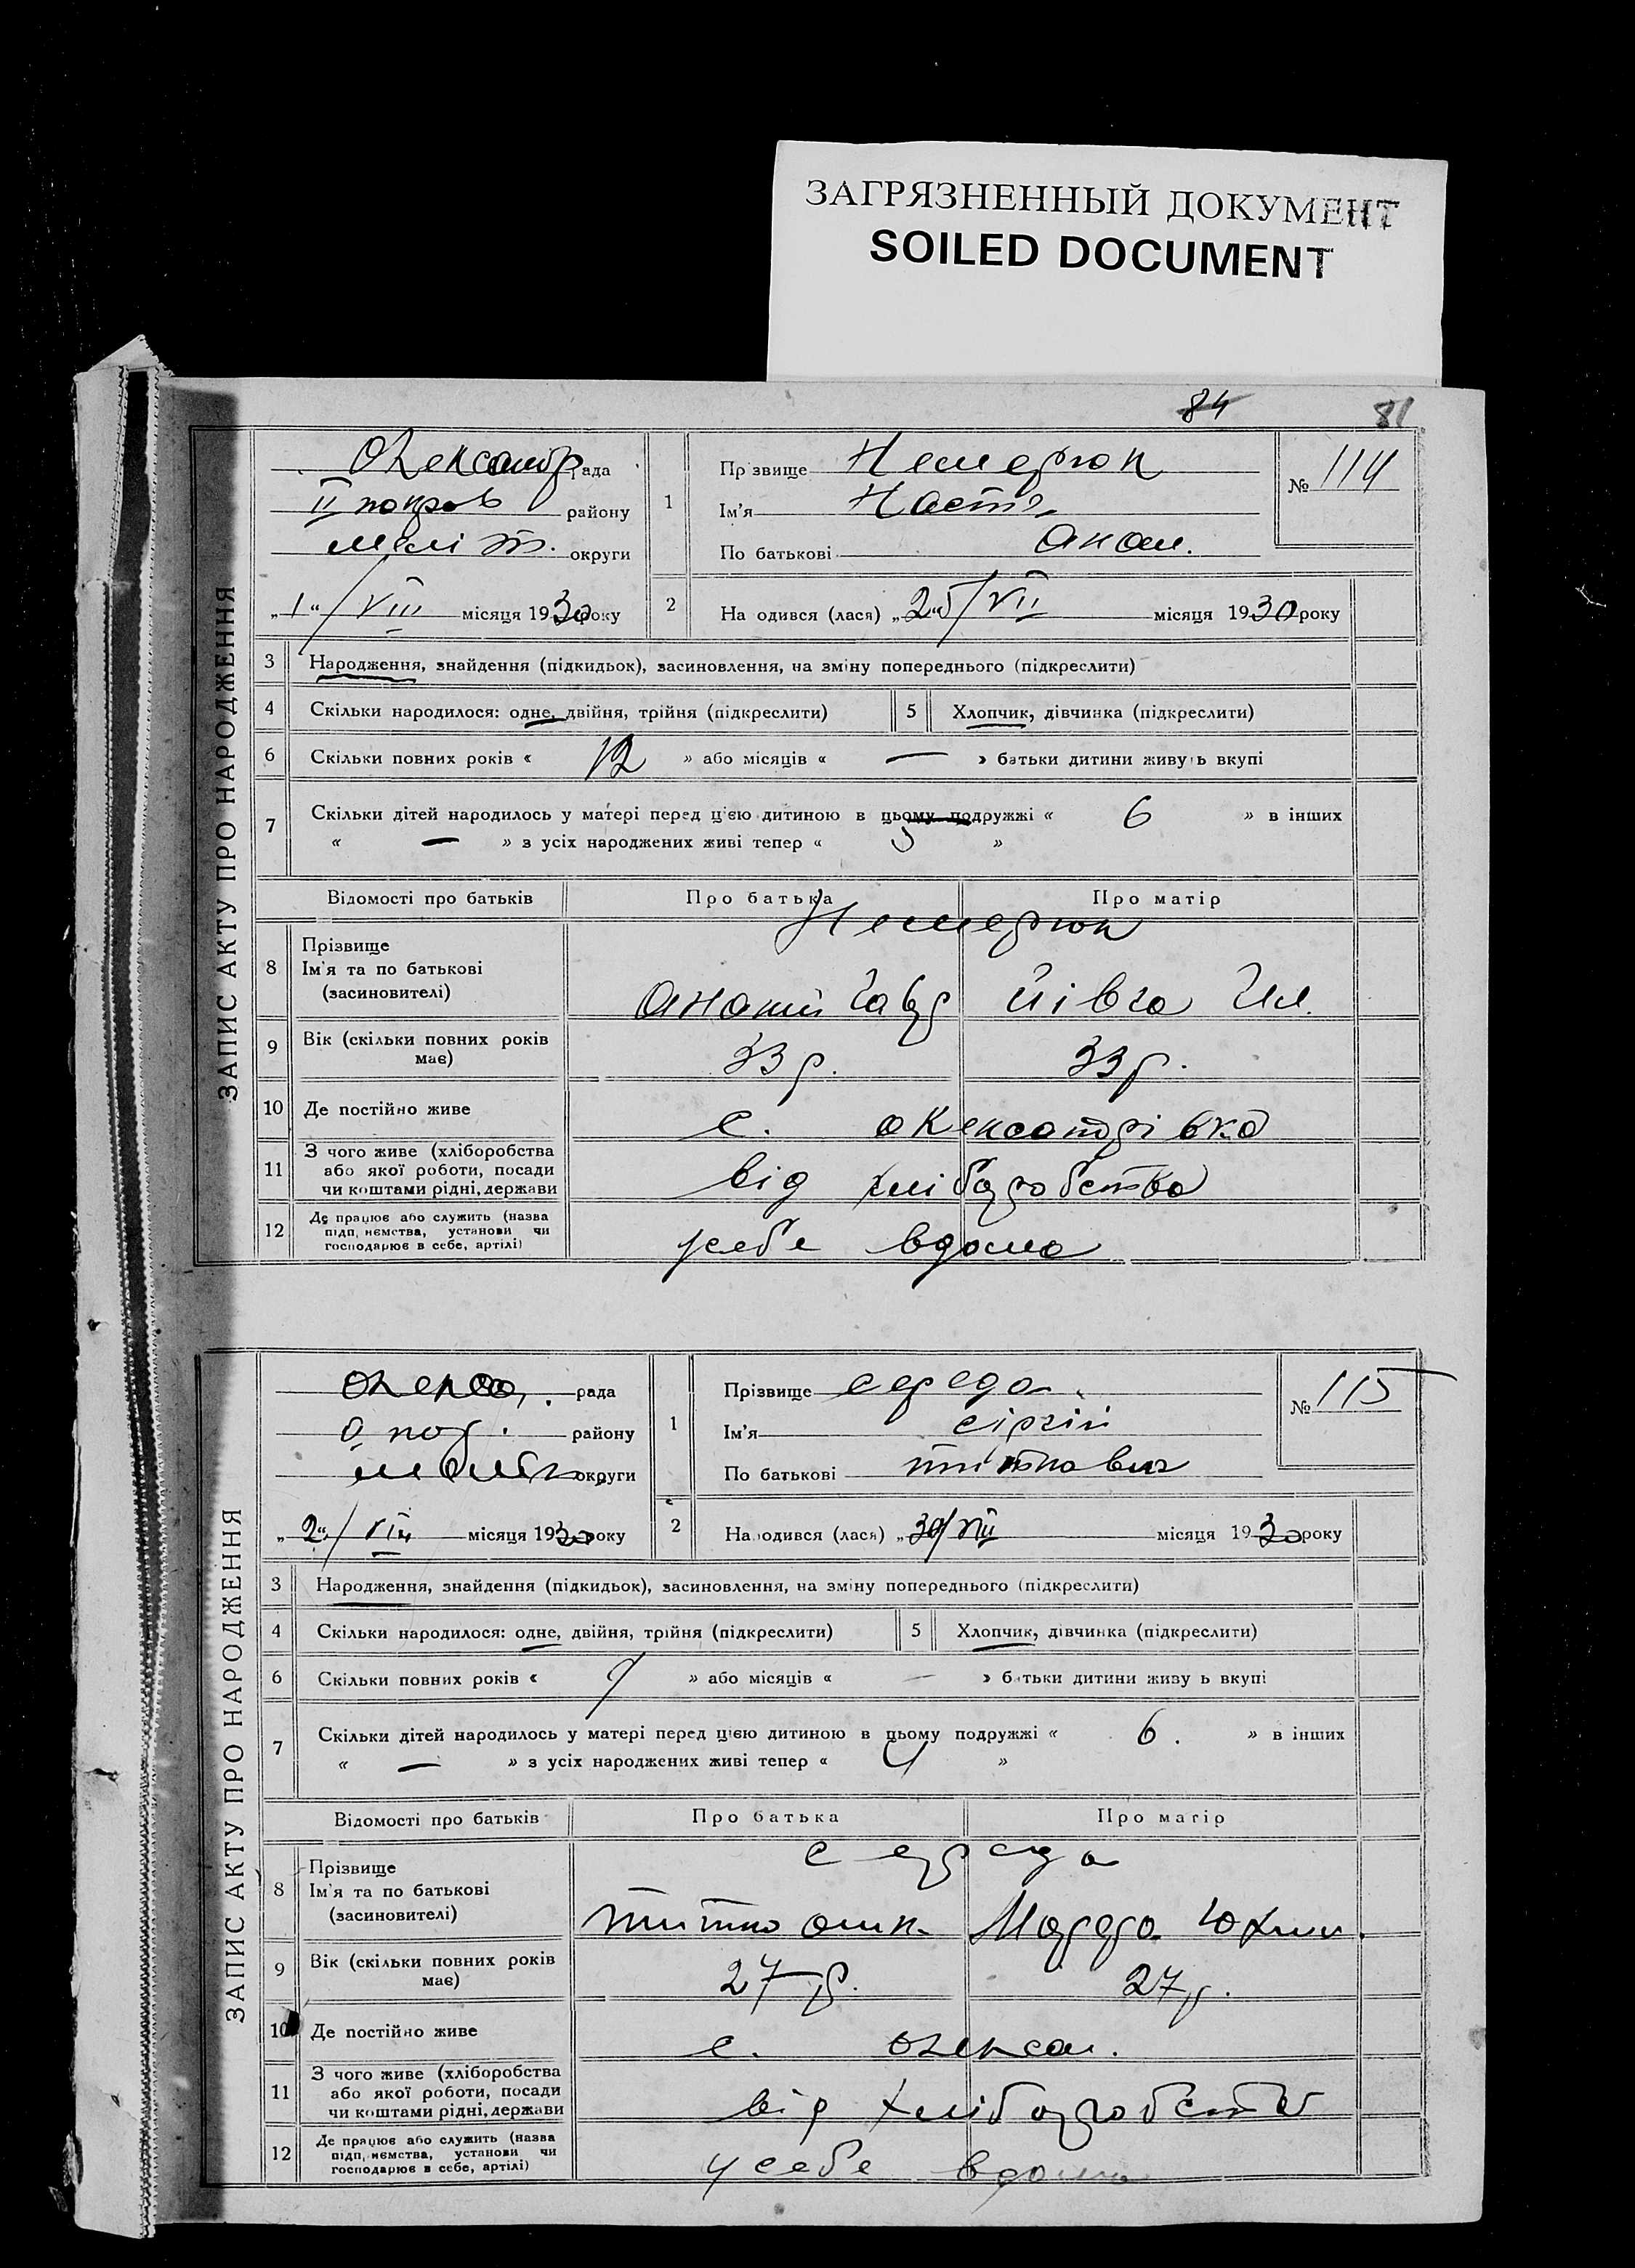 ЗАГРЯЗНЕННЫЙ ДОКУМЕНТ
SOILED DOCUMENT
84 81
ЗАПИС АКТУ ПРО НАРОДЖЕННЯ
Олександр рада
II покров району
меліт. округи
„1“/VIII місяця 1930 року
1 Прізвище Немерюк
Ім'я Настя
По батькові Анан.
№ 114
2 На одився (лася) „25/VII місяця 1930 року
3 Народження, знайдення (підкидьок), засиновлення, на зміну попереднього (підкреслити)
4 Скільки народилося: одне, двійня, трійня (підкреслити) 5 Хлопчик, дівчинка (підкреслити)
6 Скільки повних років « 12 » або місяців « — » батьки дитини живуть вкупі
7 Скільки дітей народилось у матері перед цією дитиною в цьому подружжі « 6 » в інших
« — » з усіх народжених живі тепер « 3 »
Відомості про батьків Про батька Про матір
8 Прізвище Немерюк
Ім'я та по батькові
(засновителі) Йівга
9 Вік (скільки повних років має) 33 р. 33 р.
10 Де постійно живе с. олександрівка
11 З чого живе (хліборобства
або якої роботи, посади
чи коштами рідні, держави від хліборобства
12 Де працює або служить (назва
підп, иємства, установи чи
господарює в себе, артілі) усебе вдома
ЗАПИС АКТУ ПРО НАРОДЖЕННЯ
рада
району
округи
„2“/VIII місяця 1930 року
1 Прізвище середа
Ім'я сіргій
По батькові титкович
№ 115
2 На одився (лася) „30/VIII місяця 1930 року
3 Народження, знайдення (підкидьок), засиновлення, на зміну попереднього (підкреслити)
4 Скільки народилося: одне, двійня, трійня (підкреслити) 5 Хлопчик, дівчинка (підкреслити)
6 Скільки повних років « 9 » або місяців « — » батьки дитини живу ь вкупі
7 Скільки дітей народилось у матері перед цією дитиною в цьому подружжі « 6. » в інших
« — » з усіх народжених живі тепер « 4 »
Відомості про батьків Про батька Про матір
8 Прізвище середа
Ім'я та по батькові
(засиновителі) Юхим.
9 Вік (скільки повних років має) 27 р. 27 р.
10 Де постійно живе с. олексан.
11 З чого живе (хліборобства
або якої роботи, посади
чи коштами рідні, держави від хліборобств
12 Де працює або служить (назва
підп, иємства, установи чи
господарює в себе, артілі) усебе вдома